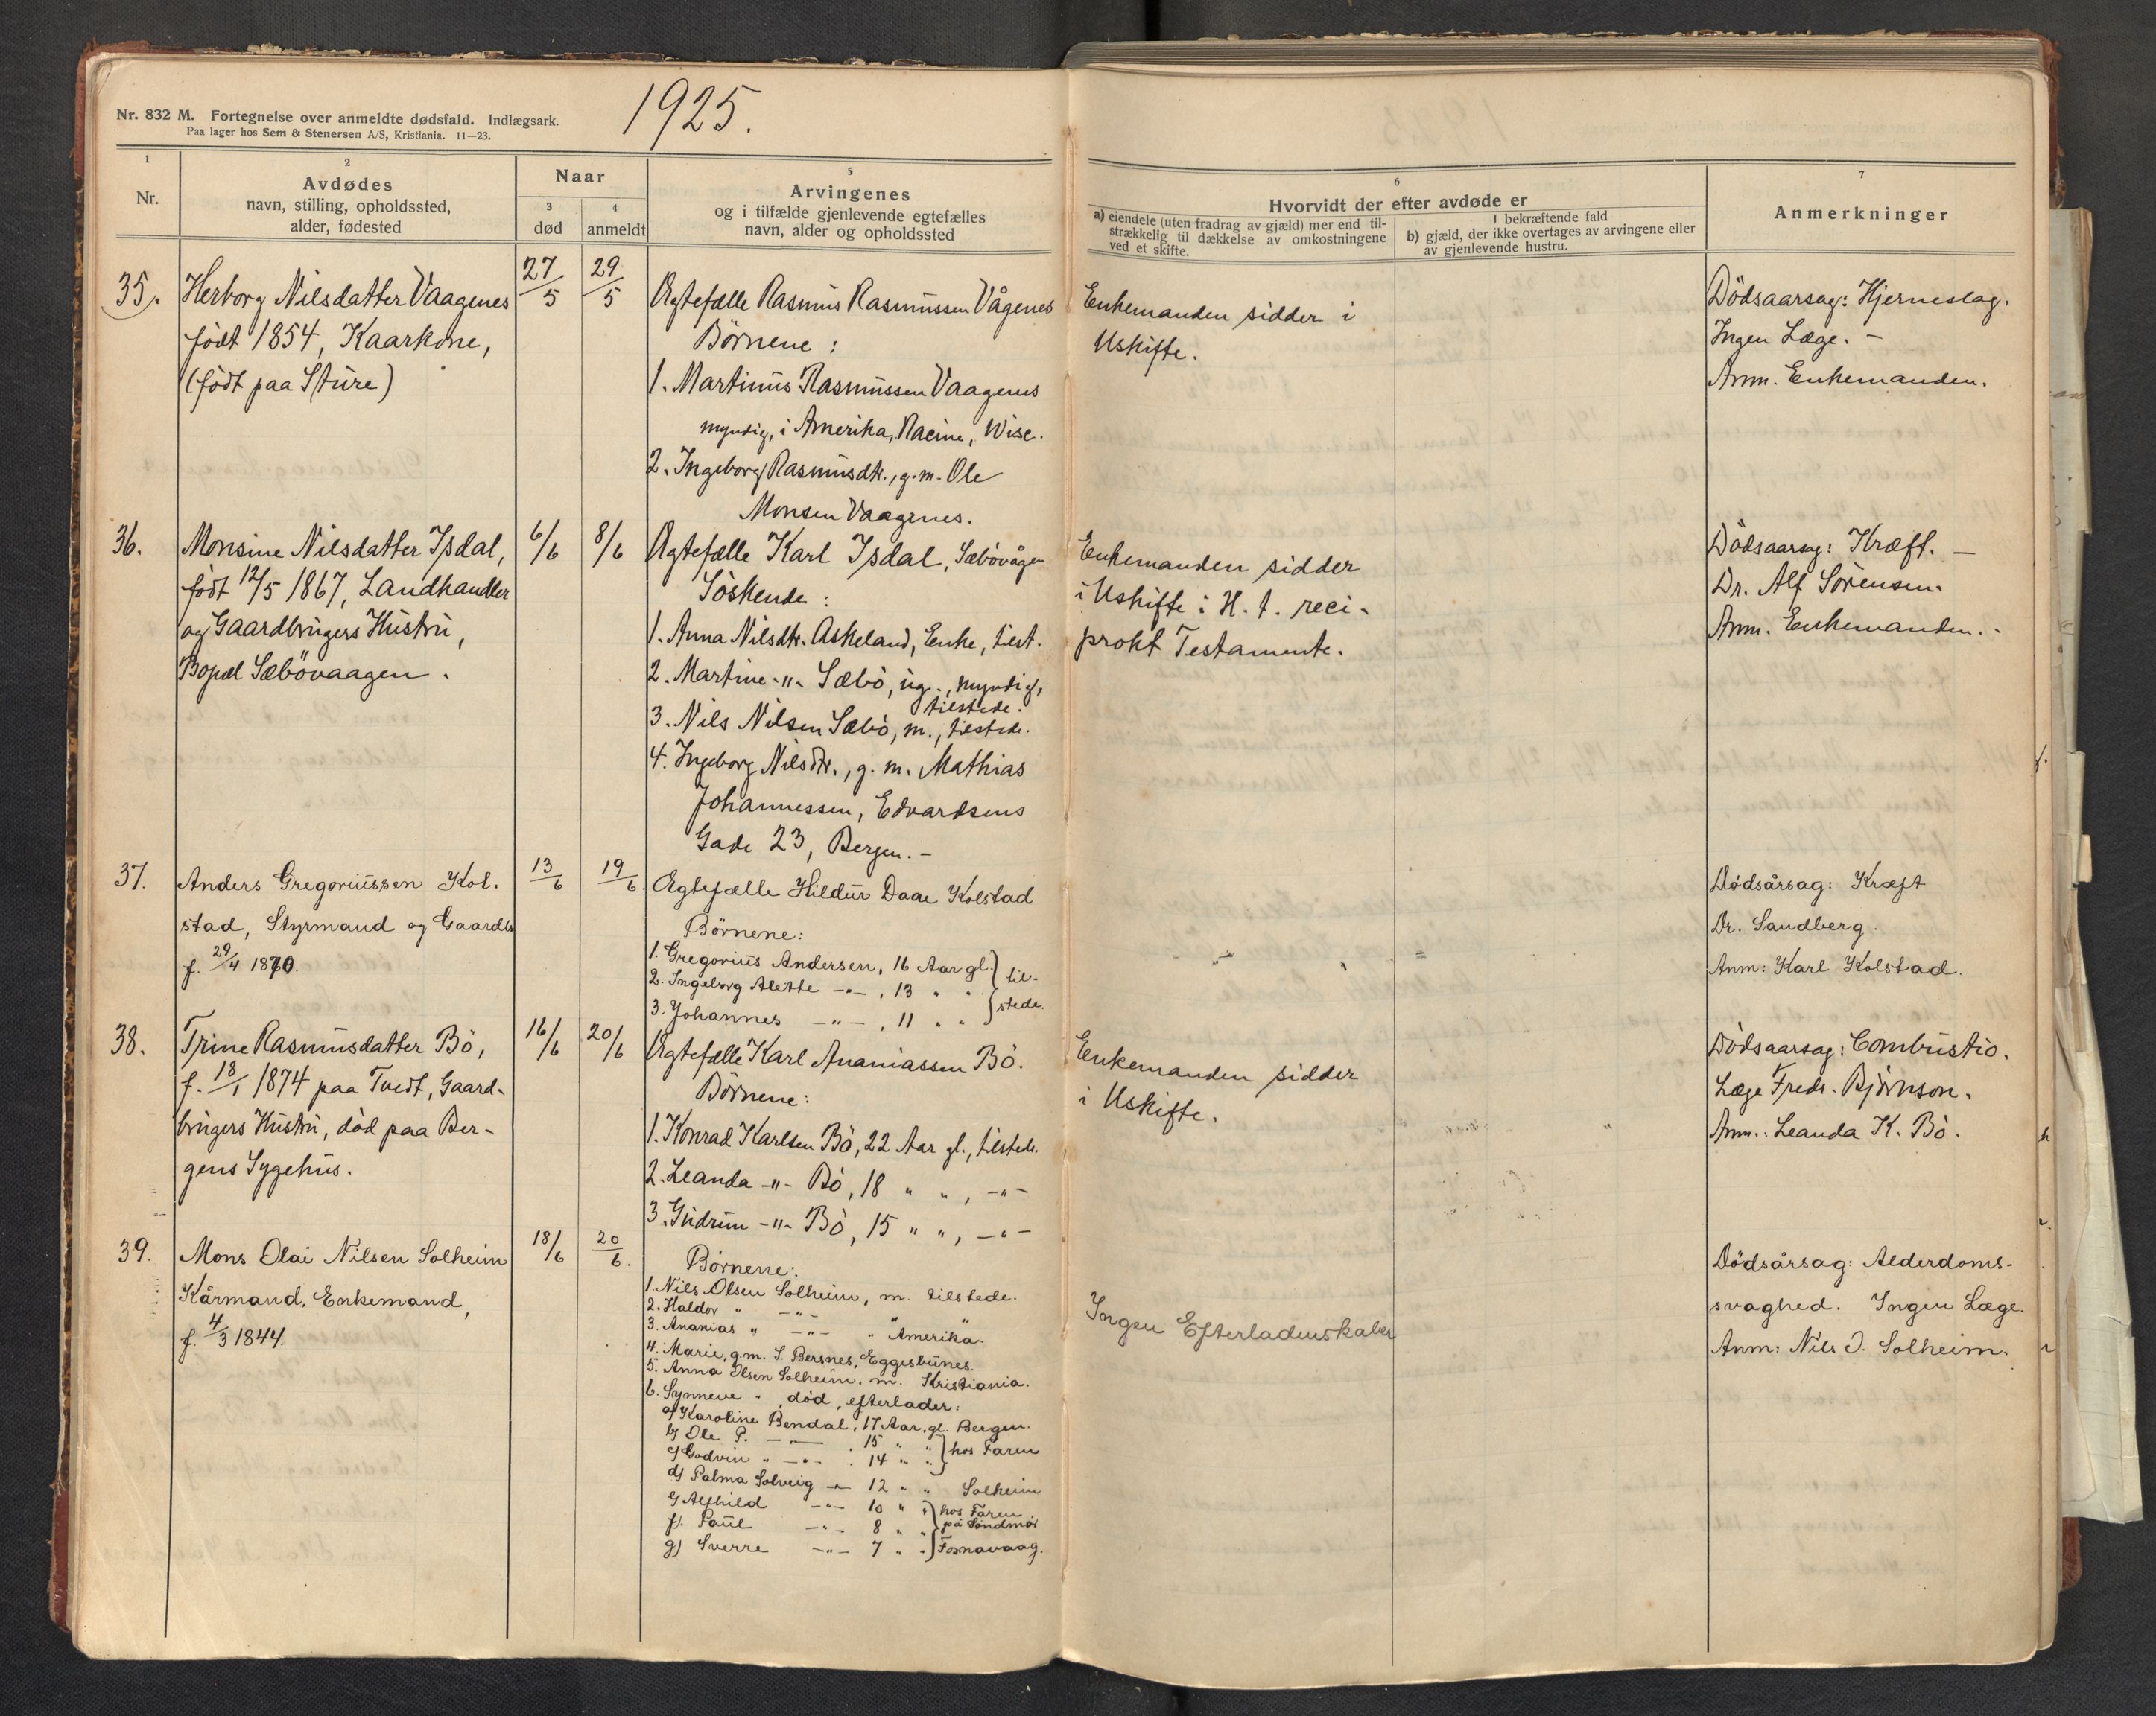 Nr. 832 M. Fortegnelse over anmeldte dødsfald. Indlægsark.
Paa lager hos Sem & Stenersen A/S, Kristiania. 11—23.
1925.
1
Nr.
2
Avdødes
navn, stilling, opholdssted,
alder, fødested
Naar
3
død
4
anmeldt
5
Arvingenes
og i tilfælde gjenlevende egtefælles
navn, alder og opholdssted
6
Hvorvidt der efter avdøde er
I bekræftende fald
a) eiendele (uten fradrag av gjæld) mer end til-
strækkelig til dækkelse av omkostningene
ved et skifte.
b) gjæld, der ikke overtages av arvingene eller
av gjenlevende hustru.
7
Anmerkninger
35.
Herborg Nilsdatter Vaagenes
født 1854, Kaarkone,
(født paa Sture)
27/5
29/5
Ægtefælle Rasmus Rasmussen Vågenes
Börnene:
1. Martinus Rasmussen Vaagenes
myndig, i Amerika, Racine, Wisc.
2. Ingeborg Rasmusdtr., g. m. Ole
Monsen Vaagenes.
Enkemanden sidder i
Uskifte.
Dödsaarsag: Hjerneslag.
Ingen Læge. —
Anm. Enkemanden.
36.
Monsine Nilsdatter Isdal,
født 12/5 1867, Landhandler
og Gaardbrugers Hustru,
Bopæl Sæbövaagen.
6/6
8/6
Ægtefælle Karl Isdal, Sæbövågen
Söskende:
1. Anna Nilsdtr. Askeland, Enke, tilst.
2. Martine -"- Sæbö, ug., myndig,
tilstede.
3. Nils Nilsen Sæbö, m., tilstede.
4. Ingeborg Nilsdtr., g. m. Mathias
Johannessen, Edvardsens
Gade 23, Bergen. —
Enkemanden sidder
i Uskifte i H. t. reci-
prokt Testamente.
Dödsaarsag: Kræft. —
Dr. Alf Sörensen.
Anm. Enkemanden. -
37.
Anders Gregoriussen Kol-
stad, Styrmand og Gaardbr
f. 29/4 1870.
13/6
19/6.
Ægtefælle Hildur Daae Kolstad
Børnene:
1. Gregorius Andersen, 16 Aar gl. } til-
2. Ingeborg Alette -"- , 13 " "
3. Johannes -"- , 11 " " } stede.
Dødsårsag: Kræft
Dr. Sandberg.
Anm: Karl Kolstad.
38.
Trine Rasmusdatter Bö,
f. 18/1 1874 paa Tvedt, Gaard-
brugers Hustru, död paa Ber-
gens Sygehus.
16/6
20/6
Ægtefælle Karl Ananiassen Bö.
Börnene:
1. Konrad Karlsen Bö, 22 Aar gl., tilstede.
2. Leanda -"- Bö, 18 " ", -"-
3. Gudrun -"- Bö, 15 " ", -"-
Enkemanden sidder
i Uskifte.
Dödsaarsag: Combustio.
Læge Fredr. Björnson.
Anm.: Leanda K. Bö.
39.
Mons Olai Nilsen Solheim
Kårmand, Enkemand,
f. 4/3 1844.
18/6
20/6.
Børnene:
1. Nils Olsen Solheim, m. tilstede.
2. Haldor " -"- " "
3. Ananias " -"- " Amerika.
4. Marie, g.m. S. Bersnes, Eggesbønes.
5. Anna Olsen Solheim, m. Kristiania.
6. Synneve " , død, efterlader:
a) Karoline Bendal, 17 Aar. gl. Bergen.
b) Ole P. -"- 15 " " } hos Faren
c) Godvin " -"- 14 " "
d) Palma Solveig -"- 12 " " Solheim
e) Alfhild -"- 10 " " } hos Faren
f) Paul -"- 8 " " på Søndmør
g) Sverre -"- 7 " " } Fosnavaag.
Ingen Efterladenskaber
Dødsårsag: Alderdoms-
svaghed. Ingen Læge.
Anm: Nils O. Solheim.